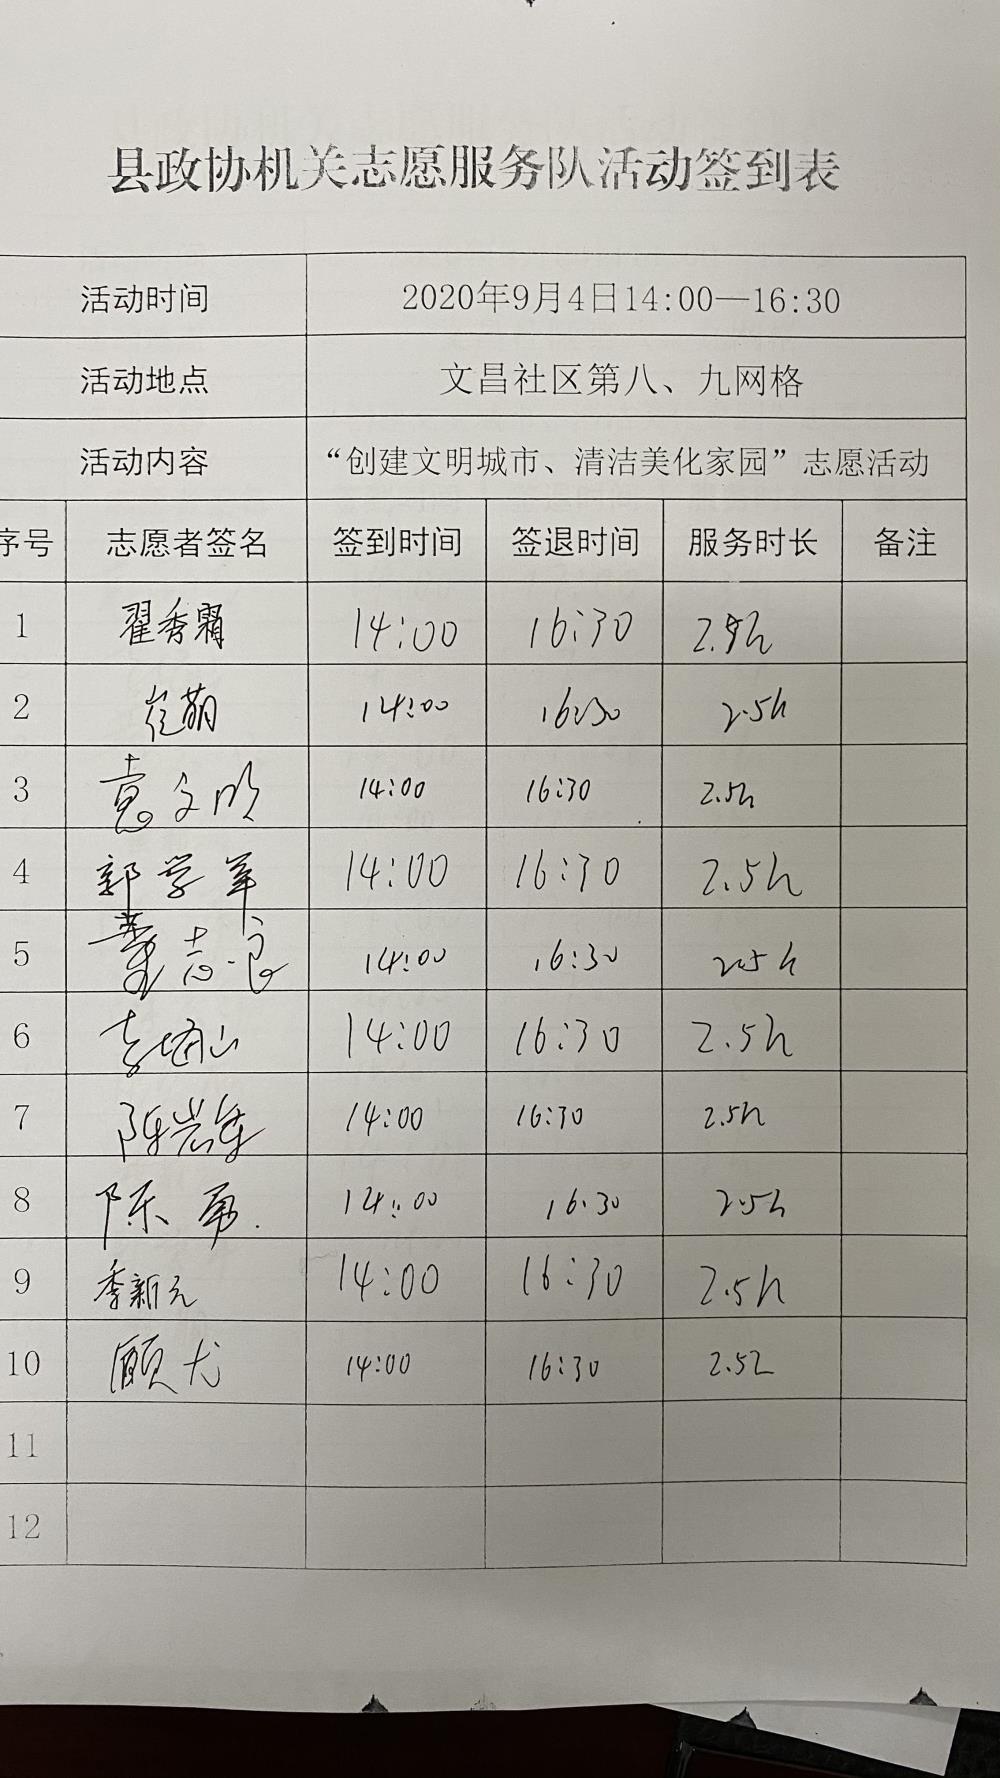 县政协机关志愿服务队活动签到表
活动时间 2020年9月4日14:00—16:30
活动地点 文昌社区第八、九网格
活动内容 “创建文明城市、清洁美化家园”志愿活动
序号 志愿者签名 签到时间 签退时间 服务时长 备注
1 翟秀霜 14:00 16:30 2.5h
2 崔萌 14:00 16:30 2.5h
3 袁文明 14:00 16:30 2.5h
4 郭学军 14:00 16:30 2.5h
5 董志良 14:00 16:30 2.5h
6 李山 14:00 16:30 2.5h
7 陈岩 14:00 16:30 2.5h
8 陈勇 14:00 16:30 2.5h
9 季新元 14:00 16:30 2.5h
10 顾尤 14:00 16:30 2.5h
11
12